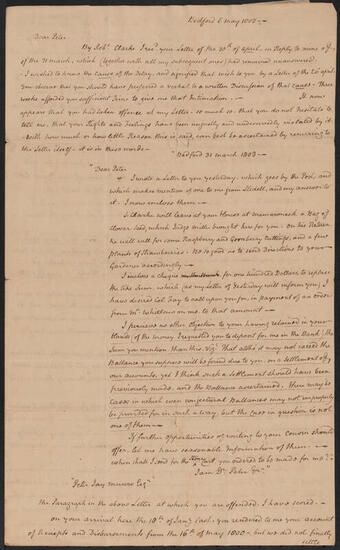 Bedford 6 May 1803.—
Dear Peter
By Joh. Clarke I rec.d your Letter of the 30th of April, in Reply to mine
of the 31 march, which (together with all my subsequent ones) had remained unanswered.
I wished to know the Cause of the Delay, and signified that wish to you by a Letter of the
you observe that you should have preferred a verbal to a written Discussion of that cause. Three
weeks afforded you sufficient Time to give me that Intimation. It now
appears that you had taken offence at my Letter so much so that you do not hesitate to
tell me, that your Rights and Feelings have been unjustly and undeservedly violated by it.
With how much or how little Reason this is said, can best be ascertained by recurring to
the Letter itself it is in these words
"Bedford 31 march 1803—
"Dear Peter
I wrote a Letter to you yesterday, which goes by the Post, and
which makes mention of one to me from Slidell, and my answer to
it. I now enclose them—
Clarke will leave at your House at mamaroneck a Bag of
clover Seed, which Judge Mills brought here for you. On his Return
he will call for some Raspberry and Goosberry Cuttings, and a few
plants of Strawberries. Be so good as to send Directions to your
Gardener accordingly—
I enclose a cheque for one hundred Dollars to replace
the like Sum, which (as my Letter of Yesterday will inform you) I
have desired Col. Jay to call upon you for, in Payment of an order
from Mr. Whitlock on me to that amount—
I perceive no other objection to your having retained in your
Hands of the money I requested you to deposit for me in the Bank, the
Sum you mention than this, viz.t That altho it may not exceed the
Ballance you suppose will be found due to you, on a Settlement of
our accounts, yet I think such a Settlement should have been
previously made and the Ballance ascertained. There may be
Cases in which even conjectural Ballances may not improperly
be provided for in such a way, but the Case in question is not
one of them—
If further opportunities of writing to your Cousin should
offer, let me have seasonable Information of them.—
when shall I send for the Cart you ordered to be made for me?—
I am Dr. Peter Yrs."
"Peter Jay Munro Esq.r"
The Paragraph in the above Letter at which you are offended, I have scored.—
On your arrival here the 10th of Jany. last, you rendered to me your account
of Receipts and Disbursements from the 16th of May 1800 but we did not finally
settle